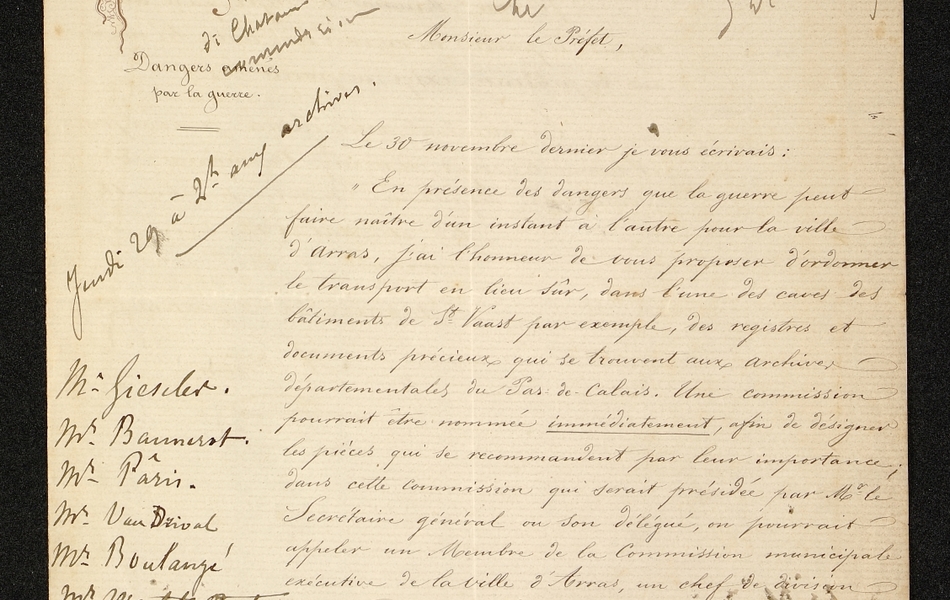 Monsieur le Préfet,
Dangers amenés
par la guerre.
Jeudi 29 à 2h aux archives.
Le 30 novembre dernier je vous écrivais :
" En présence des dangers que la guerre peut
faire naître d'un instant à l'autre pour la ville
d'Arras, j'ai l'honneur de vous proposer d'ordonner
le transport en lieu sûr, dans l'une des caves des
bâtiments de St Vaast par exemple, des registres et
documents précieux qui se trouvent aux archives
départementales du Pas-de-Calais. Une commission
pourrait être nommée immédiatement, afin de désigner
les pièces qui se recommandent par leur importance ;
dans cette commission qui serait présidée par Mr le
Secrétaire général ou son délégué, on pourrait
appeler un Membre de la Commission municipale
exécutive de la ville d'Arras, un chef de division
Mr Gieseler.
Mr
Mr Pâris.
Mr Van Drival
Mr Boulangé